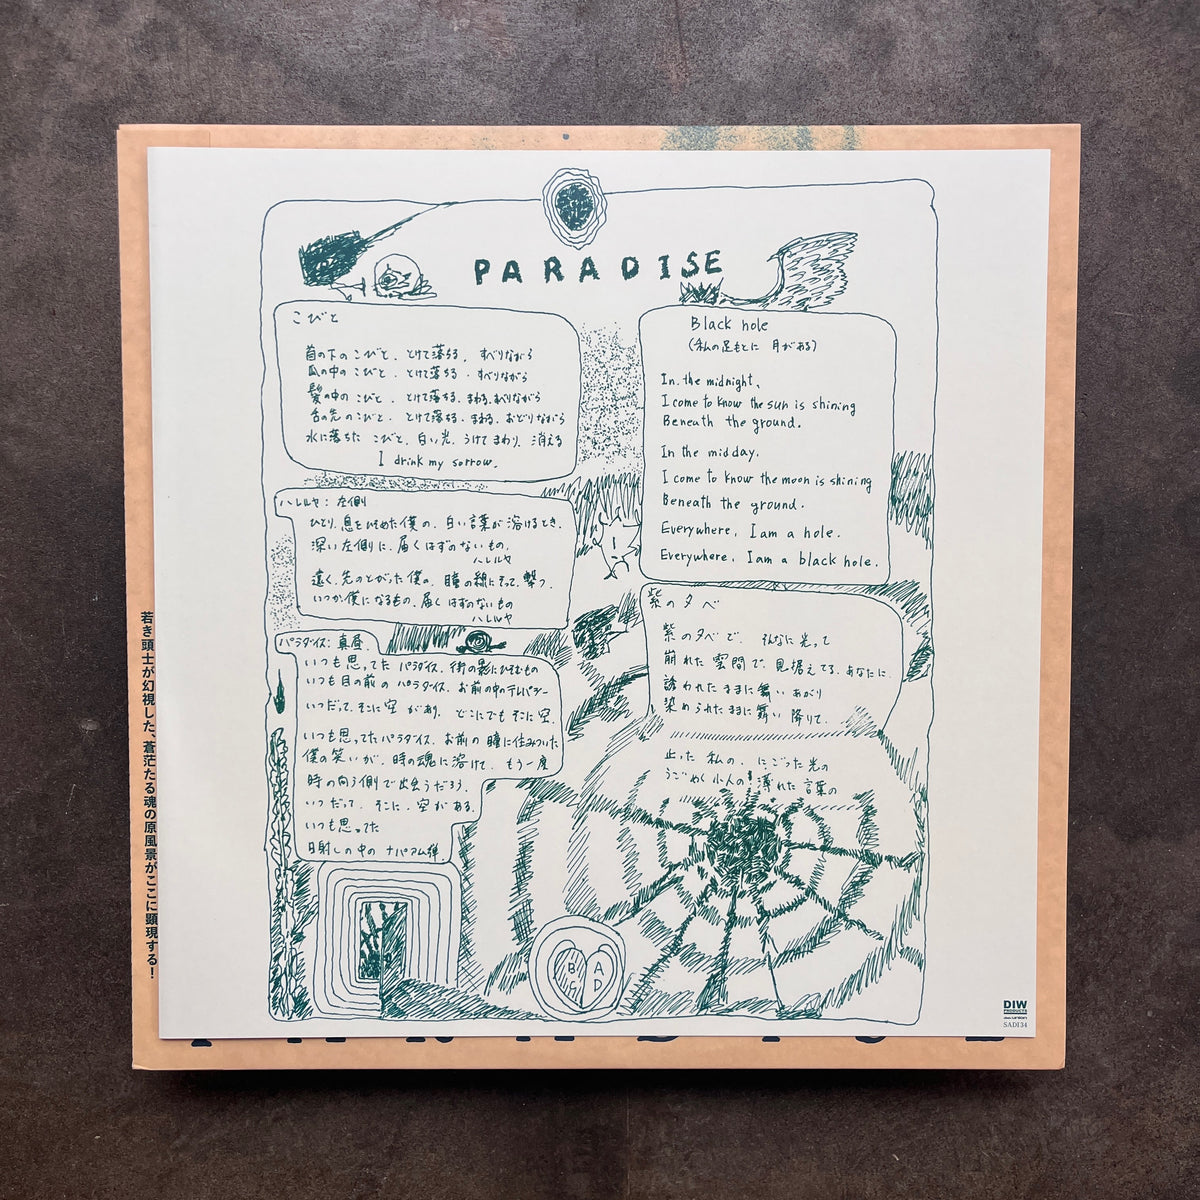 PARADISE
こびと
首の下のこびと、とけて落ちる、すべりながら
爪の中のこびと、とけて落ちる、すべりながら
髪の中のこびと、とけて落ちる、まわる、ねむりながら
舌の先のこびと、とけて落ちる、まわる、おどりながら
水に落ちた こびと、白い光、うけて まわり、消える
I drink my sorrow.
ハレルヤ：左側
ひとり、息をひそめた僕の、白い言葉が 溶けるとき、
深い左側に、届くはずのないもの、
ハレルヤ
遠く、先のとがった僕の、瞳の線にそって、撃つ、
いつか、僕になるもの、届くはずのないもの
ハレルヤ
パラダイス：真昼
いつも思ってた パラダイス、街の影にひそむもの
いつも目の前の パラダイス、お前の中のテレパシー
いつだって、そこに空 があり、どこにでも そこに空、
いつも思ってたパラダイス、お前の 瞳に住みついた
僕の笑いが、時の魂に溶けて、もう一度
時の向う側で出会うだろう、
いつだって、そこに、空がある、
いつも思ってた
日射しの中の ナパアム弾
Black hole
(私の足もとに 月がある)
In the midnight,
I come to know the sun is shining
Beneath the ground.
In the midday,
I come to know the moon is shining
Beneath the ground.
Everywhere, I am a hole.
Everywhere, I am a black hole.
紫の夕べ
紫の夕べで、そんなに光って
崩れた 雲間で、見据えてる、あなたに
誘われたままに 舞い あがり
染められたままに 舞い 降りて、
止った 私の、にごった光の
うごめく 小人の！薄れた 言葉の
B A
C D
若き頭士が幻視した、蒼茫たる魂の原風景がここに顕現する！
DIW
PRODUCTS
disk union
SADI34